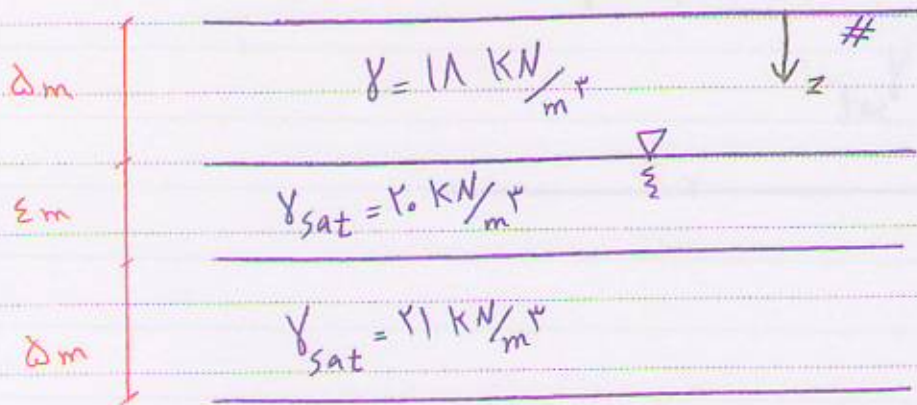 ۵m
γ = ۱۸ KN/m۳
z
۴m
γsat = ۲۰ KN/m۳
۵m
γsat = ۲۱ KN/m۳